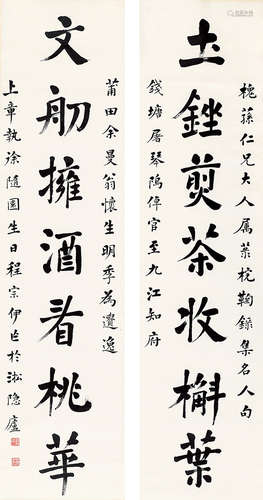 槐蓀仁兄大人属葉枕鞠錄集名人句
土銼煎茶收槲葉
錢塘屠琴隖倬官至九江知府
莆田余曼翁懷生明季為遺逸
文舠擁酒看桃華
上章執徐隨園生日程宗伊巳於淞隐廬